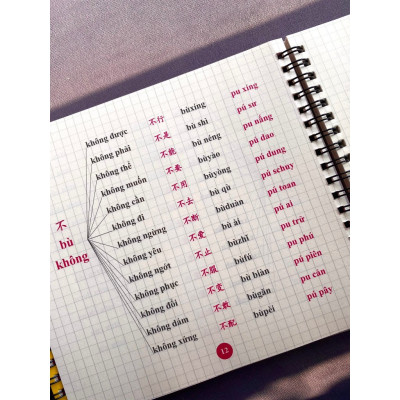 不
bù
không
không được 不行 bùxíng pu xíng
không phải 不是 bù shì pú sư
không thể 不能 bù néng pu nẩng
không muốn 不要 bùyào pú dao
không cần 不用 bùyòng pú dung
không đi 不去 bù qù pú schuy
không ngừng 不断 bùduàn pú toan
không yêu 不爱 bù ài pú ai
không ngớt 不止 bùzhǐ pu trử
không phục 不服 bùfú pu phú
không đổi 不变 bù biàn pú piên
không dám 不敢 bùgǎn pu cản
không xứng 不配 bùpèi pú pây
12